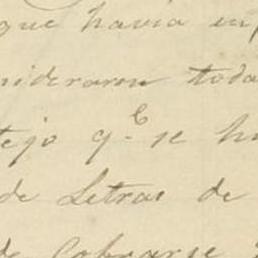 que havia en
sideraron toda
tejo q.e se hi
de Letras de
de Cobrarse